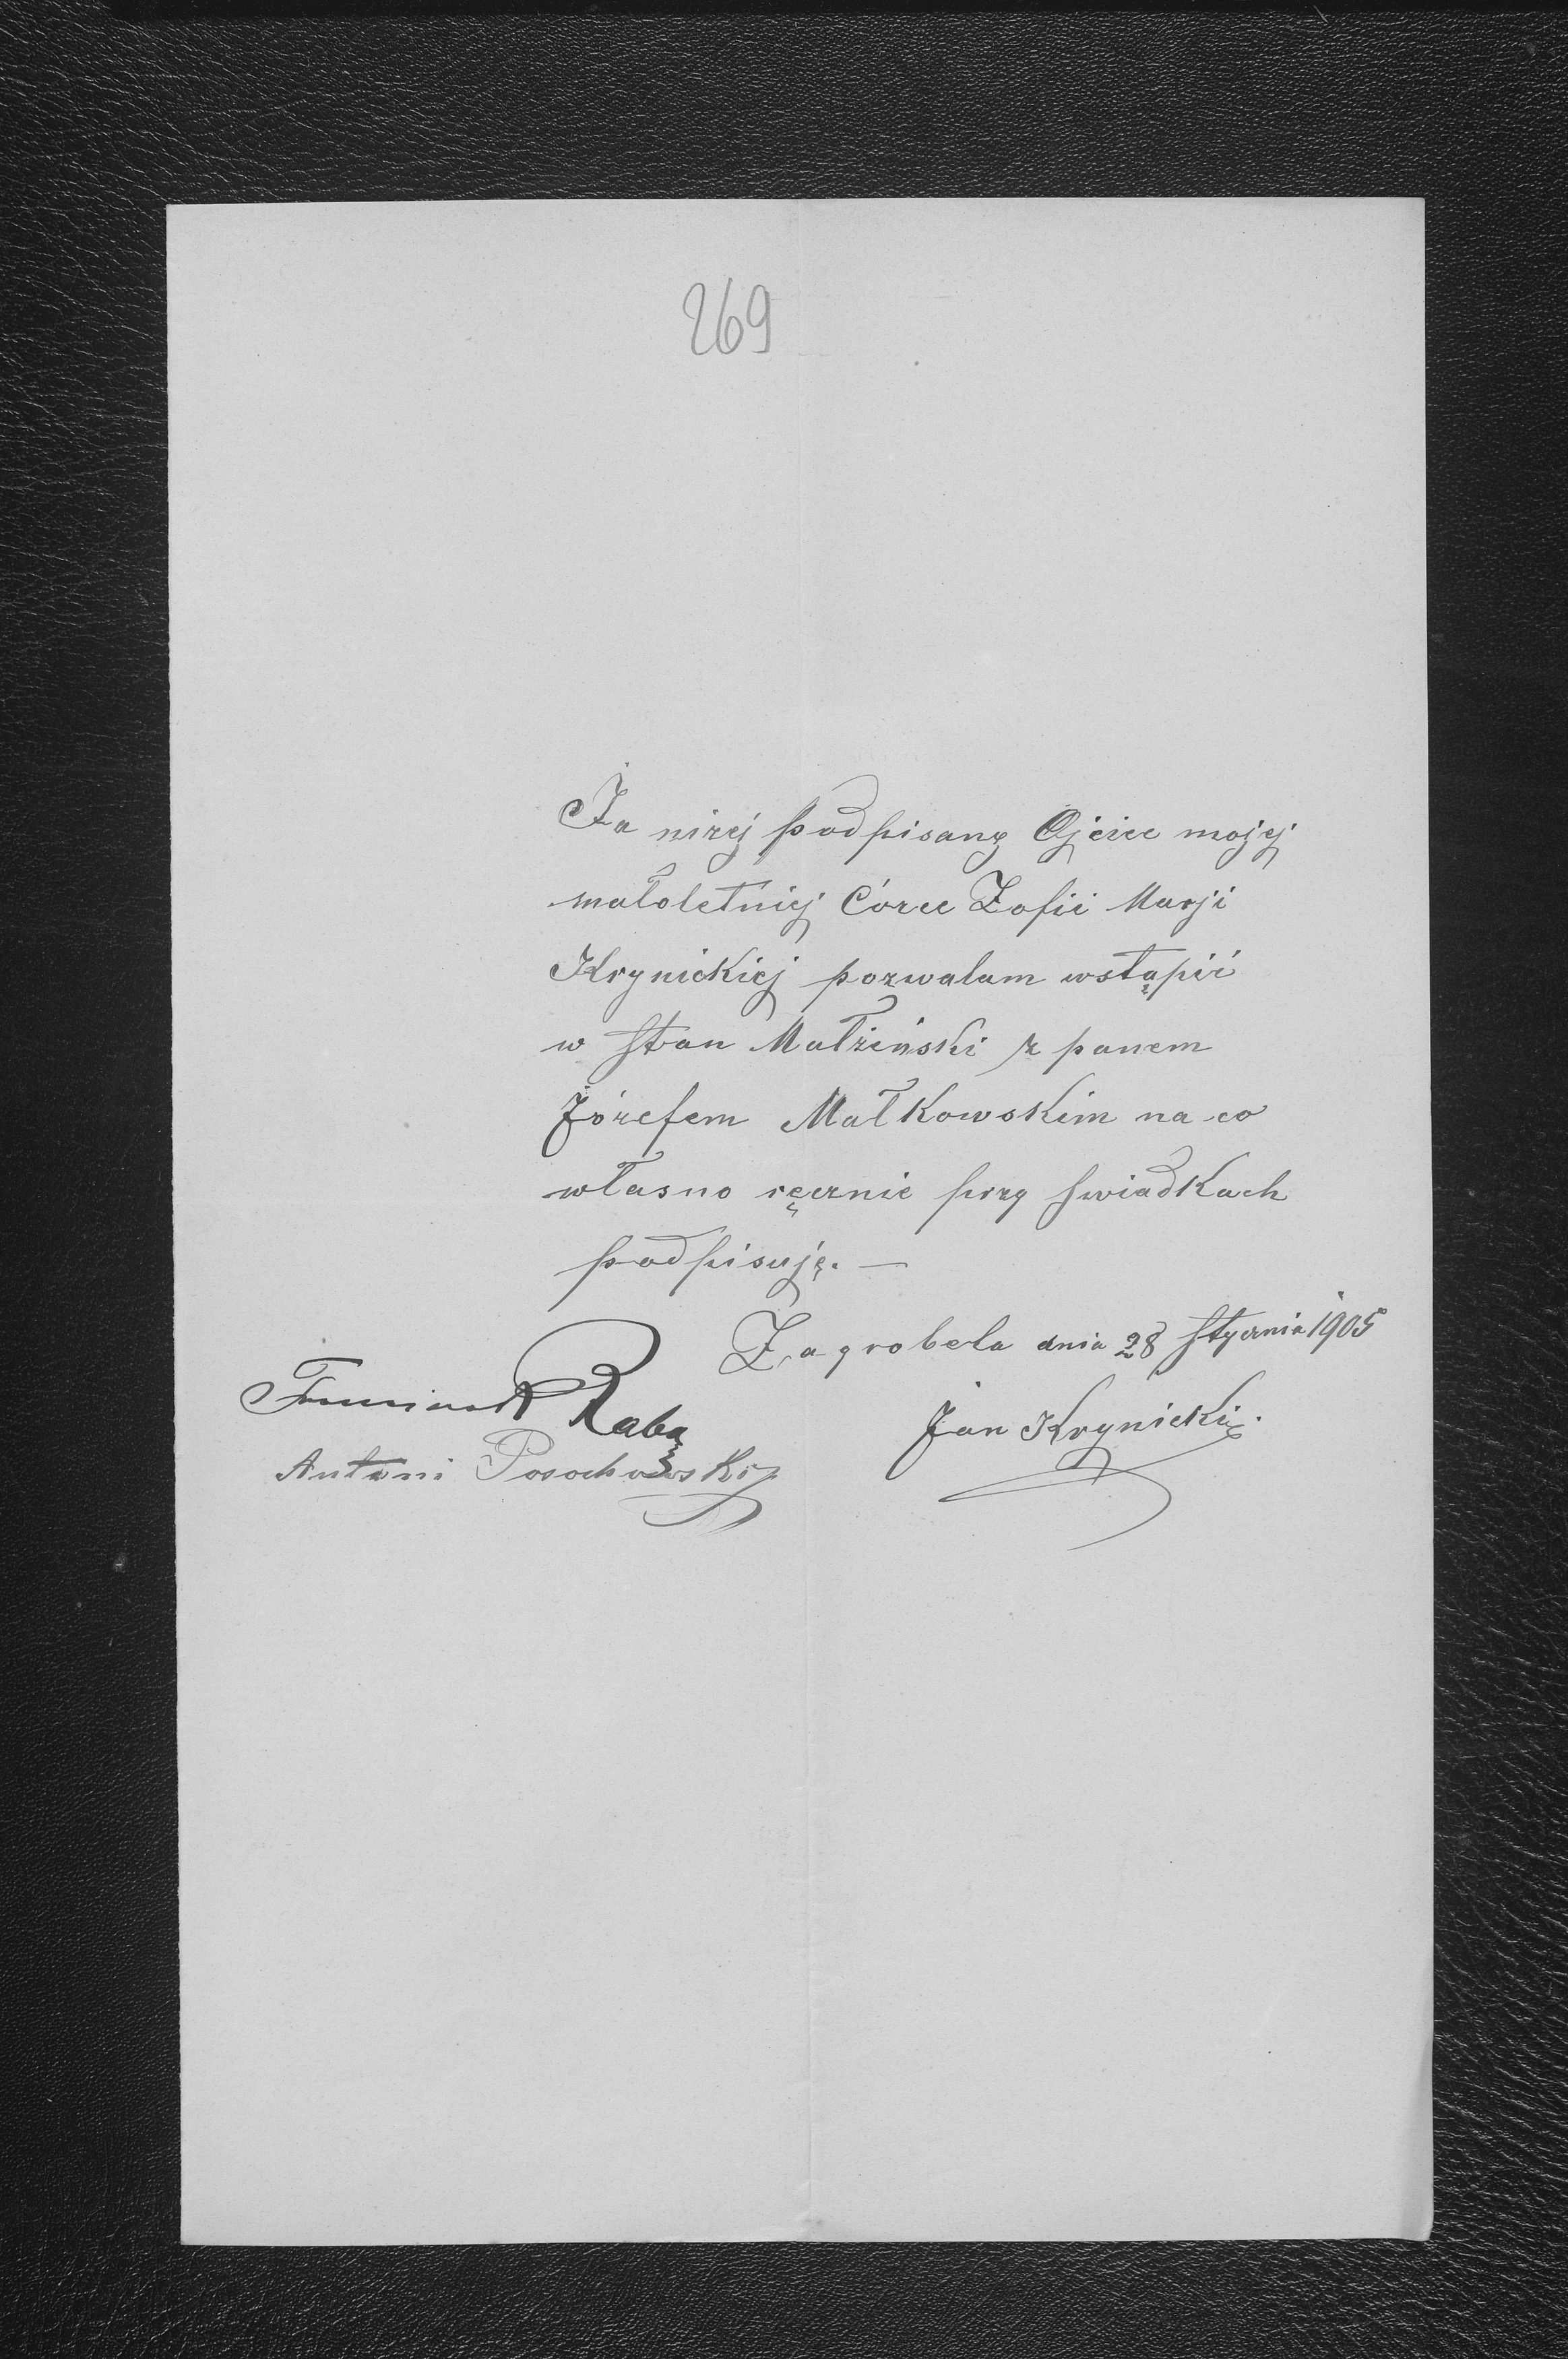 269
Ja niżej podpisany Ojciec mojej
małoletniej Córce Zofii Marji
Krynickiej pozwalam wstąpić
w stan Małżeński z panem
Józefem Małkowskim na co
własno ręcznie przy swiadkach
podpisuję. —
Zagrobela dnia 28 stycznia 1905
Franciszek Raba
Jan Krynicki.
Antoni Posochowski